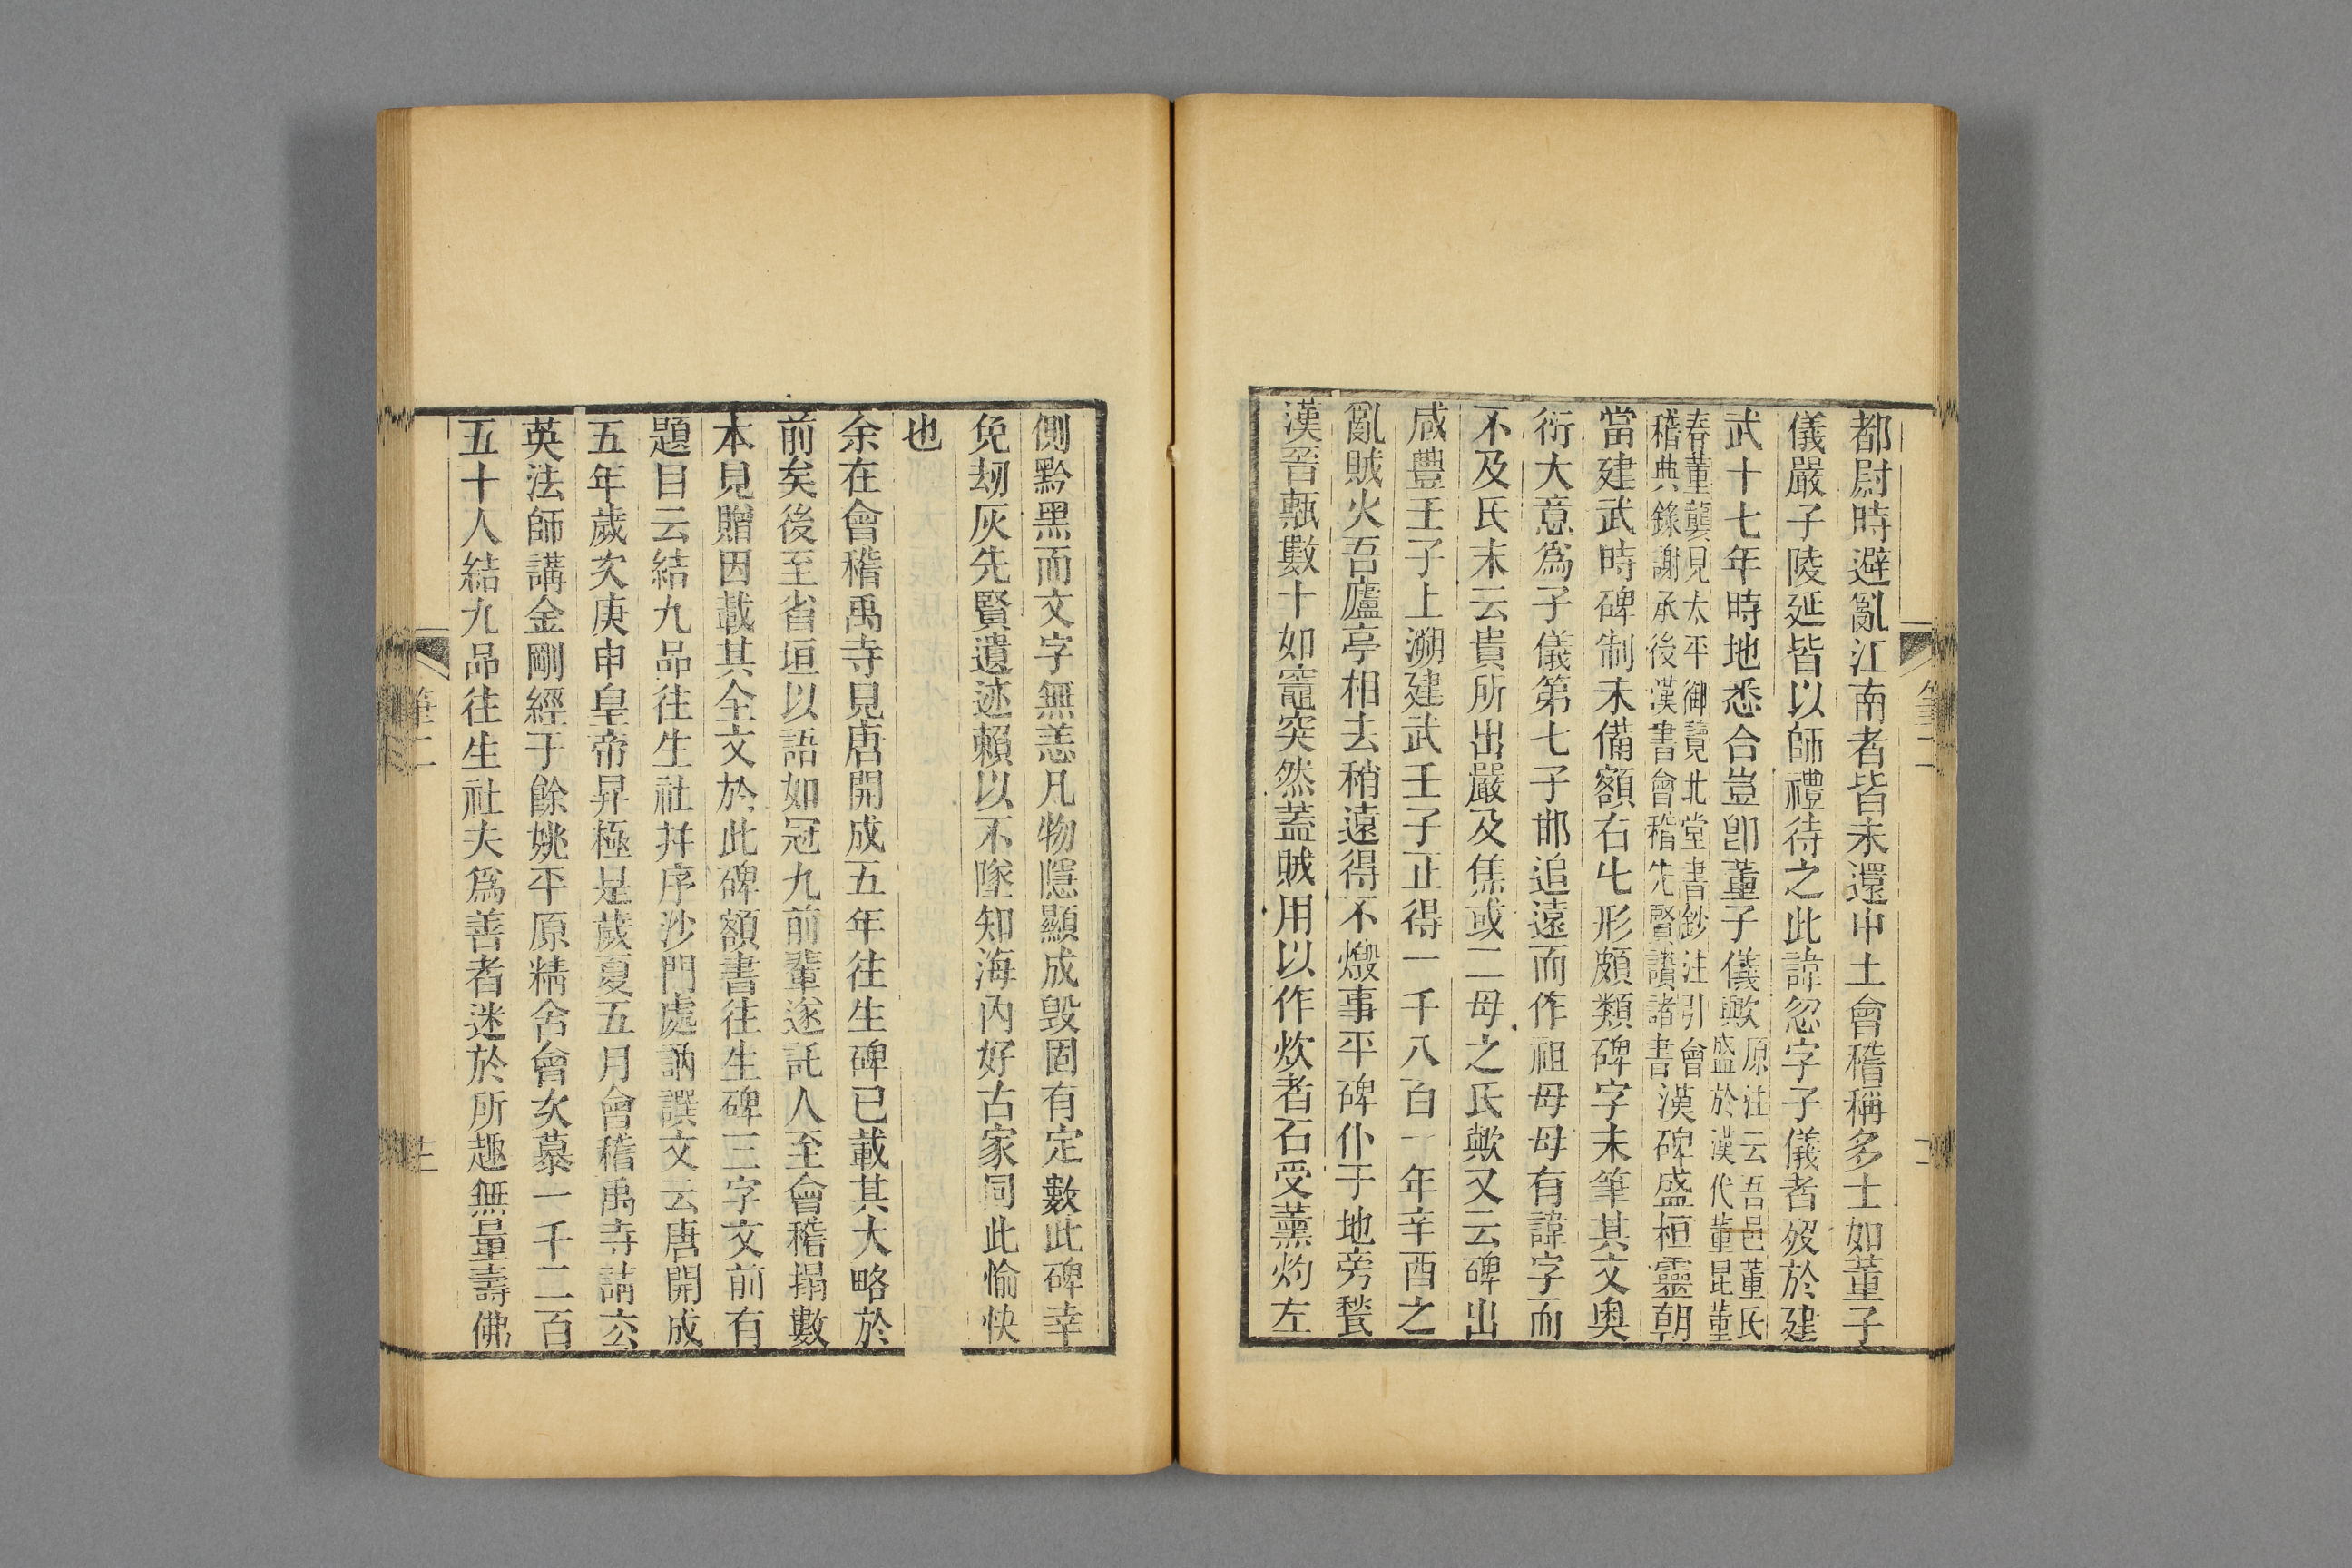 都尉時避亂江南者皆未還中土會稽稱多士如董子
儀嚴子陵延皆以師禮待之此諱忽字子儀者歿於建
武十七年時地悉合豈卽董子儀歟原注云吾邑董氏盛於漢代董昆董
春董龔見太平御覽北堂書鈔注引會稽典錄謝承後漢書會稽先賢讚諸書漢碑盛桓靈朝
當建武時碑制未備額右七形頗類碑字末筆其文奧
衍大意爲子儀第七子邯追遠而作祖母母有諱字而
不及氏末云貴所出嚴及焦或二母之氏歟又云碑出
咸豐壬子上溯建武壬子正得一千八百一年辛酉之
亂賊火吾廬亭相去稍遠得不燬事平碑仆于地旁甃
漢晉甎數十如竈突然蓋賊用以作炊者石受薰灼左
側黔黑而文字無恙凡物隱顯成毁固有定數此碑幸
免刼灰先賢遺迹賴以不墜知海內好古家同此愉快
也
余在會稽禹寺見唐開成五年往生碑已載其大略於
前矣後至省垣以語如冠九前輩遂託人至會稽搨數
本見贈因載其全文於此碑額書往生碑三字文前有
題目云結九品往生社并序沙門處訥譔文云唐開成
五年歲次庚申皇帝昇極是歲夏五月會稽禹寺請玄
英法師講金剛經于餘姚平原精舍會次募一千二百
五十人結九品往生社夫爲善者迷於所趣無量壽佛
筆二